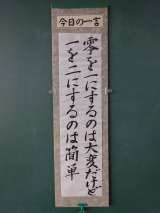 今日の一言
零を一にするのは大変だけど
一を二にするのは簡単